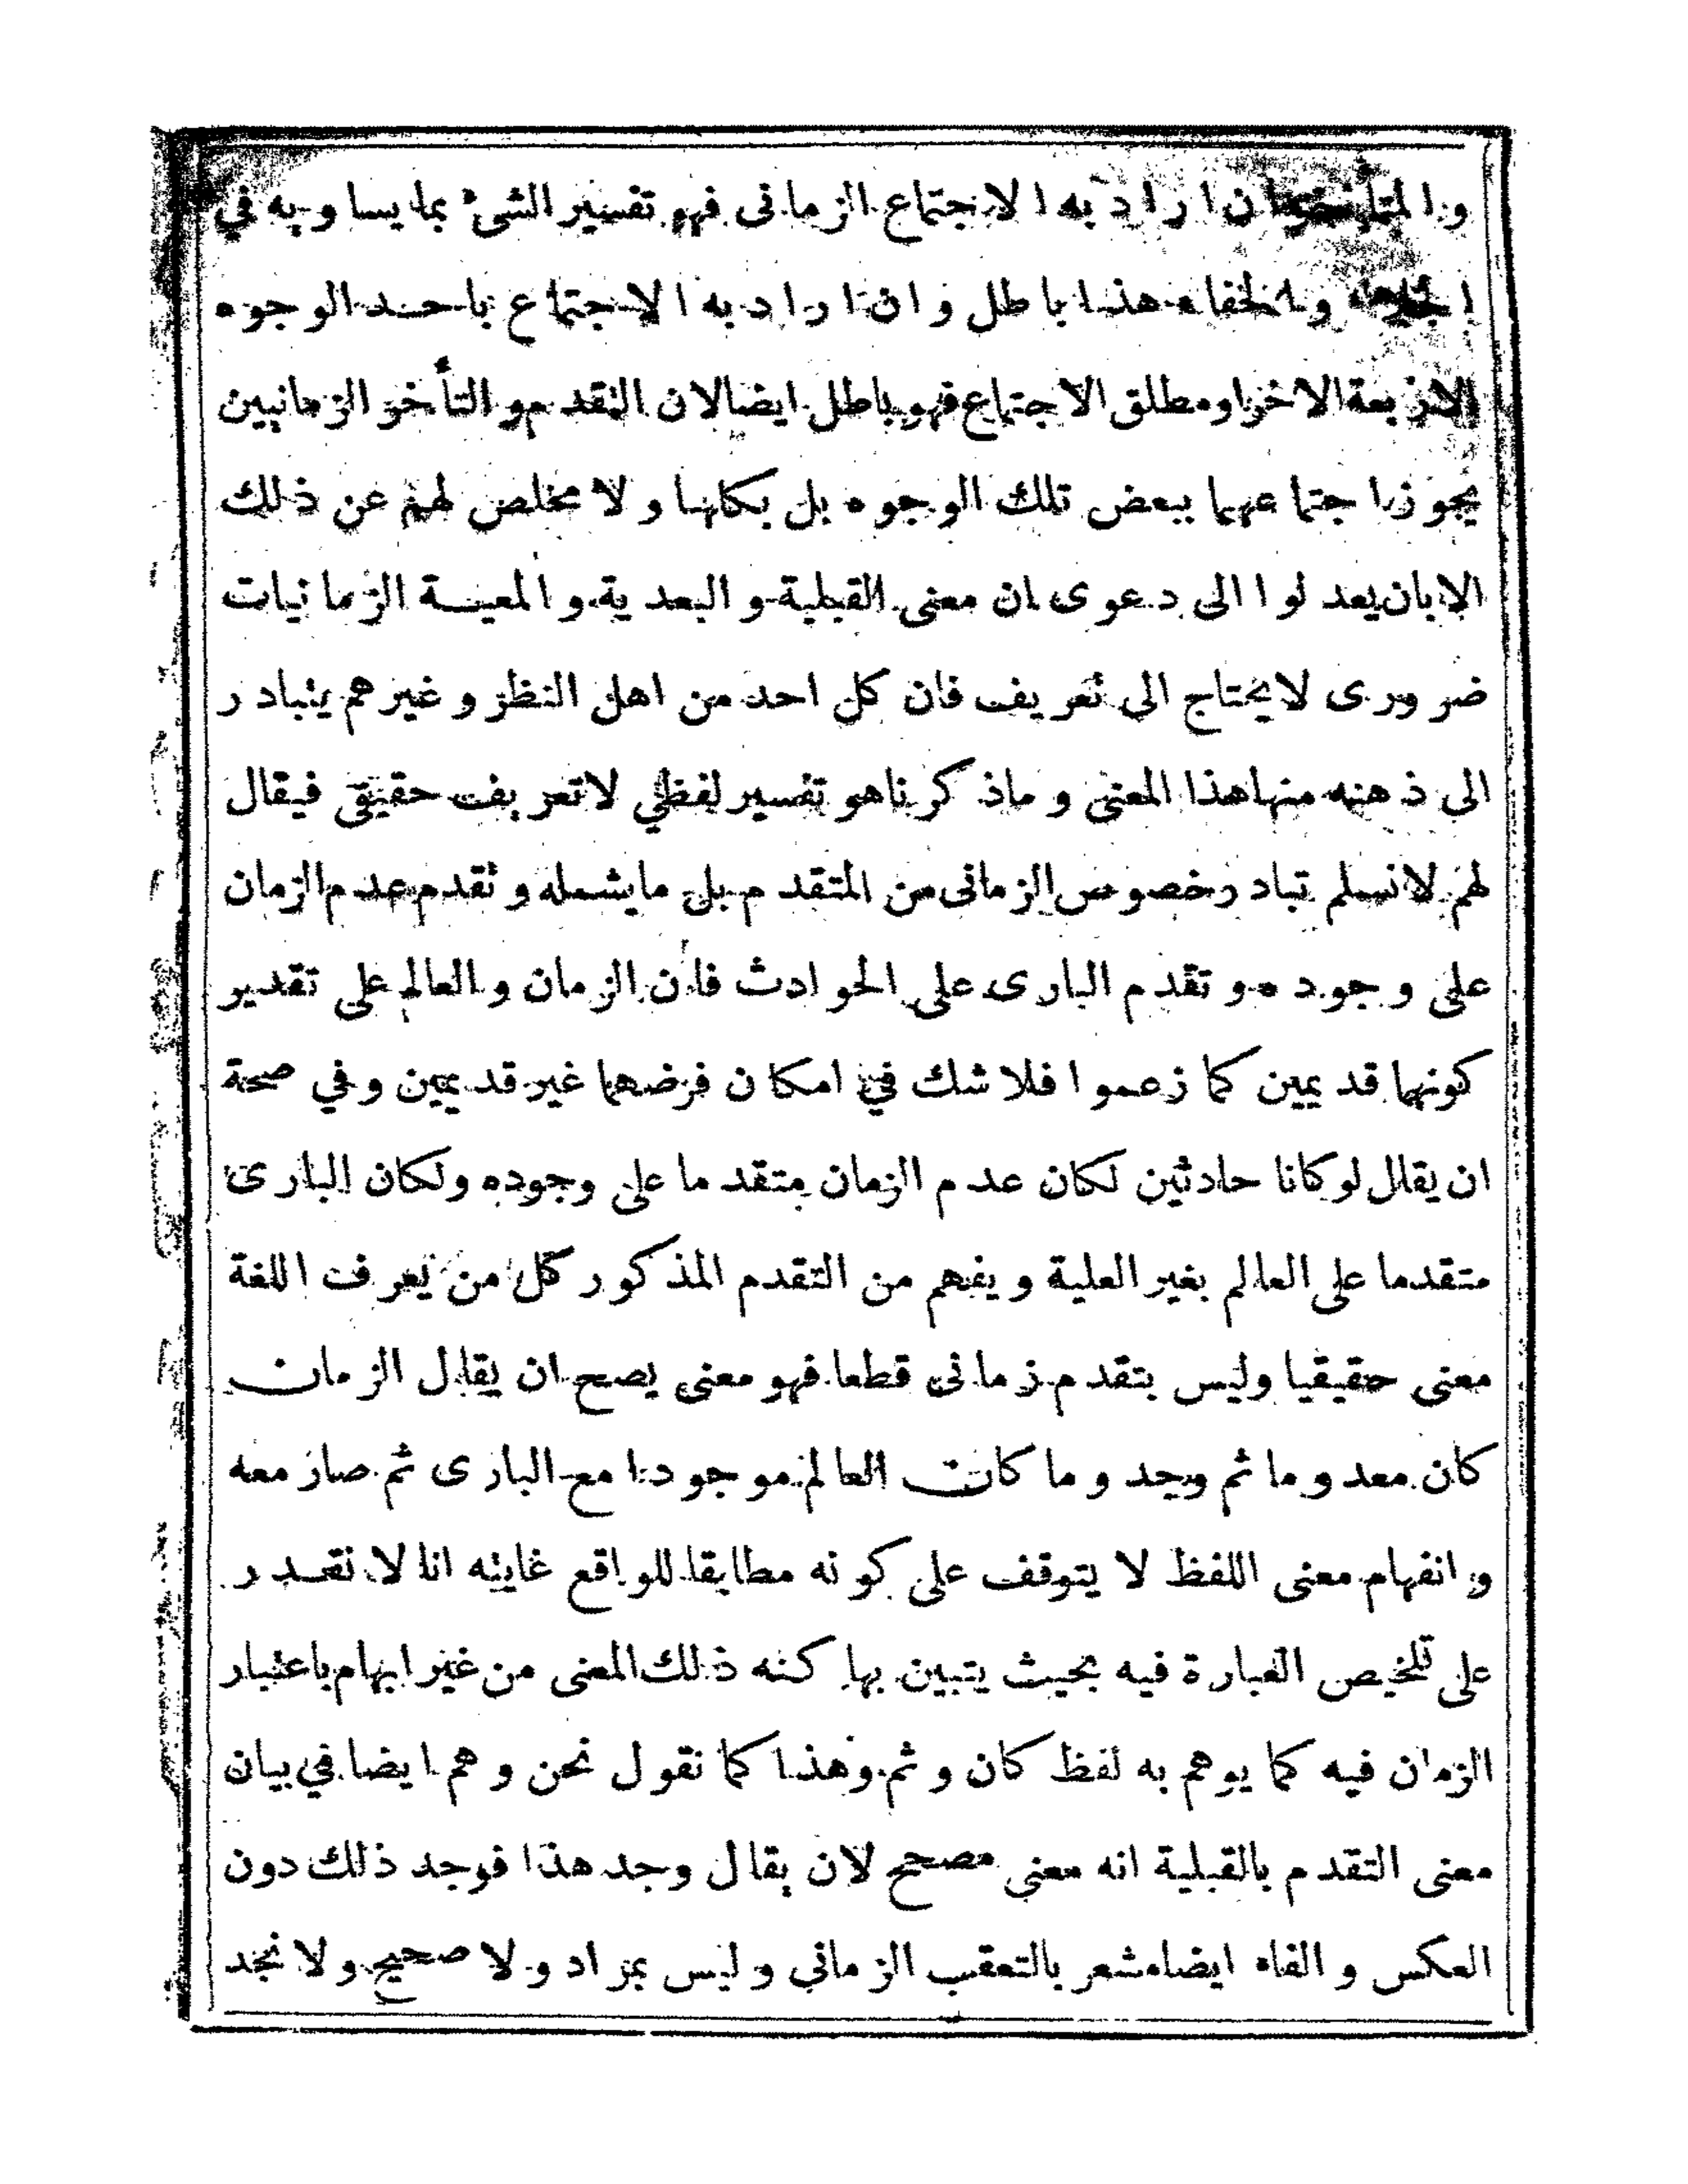 والمتأخر ان اراد به الاجتماع الزمانى فهو تفسير الشئ بما يساويه في
الجلاء والخفاء هذا باطل وان اراد به الاجتماع باحد الوجوه
الاربعة الاخر او مطلق الاجتماع فهو باطل ايضا لان التقدم والتأخر الزمانيين
يجوز اجتماعهما ببعض تلك الوجوه بل بكلها ولا مخلص لهم عن ذلك
الا بان يعدلوا الى دعوى ان معنى القبلية والبعدية والمعية الزمانيات
ضرورى لا يحتاج الى تعريف فان كل احد من اهل النظر وغيرهم يتبادر
الى ذهنه منها هذا المعنى وماذكرناهو تفسير لفظي لا تعريف حقيقى فيقال
لهم لا نسلم تبادر خصوص الزمانى من المتقدم بل ما يشمله وتقدم عدم الزمان
على وجوده وتقدم البارى على الحوادث فان الزمان والعالم على تقدير
كونهما قديمين كما زعموا فلا شك في امكان فرضهما غير قديمين وفي صحة
ان يقال لو كانا حادثين لكان عدم الزمان متقدما على وجوده ولكان البارى
متقدما على العالم بغير العلية ويفهم من التقدم المذكور كل من يعرف اللغة
معنى حقيقيا وليس بتقدم زمانى قطعا فهو معنى يصح ان يقال الزمان
كان معدوما ثم وجد وما كان العالم موجودا مع البارى ثم صار معه
وانفهام معنى اللفظ لا يتوقف على كونه مطابقا للواقع غايته انا لا نقدر
على تلخيص العبارة فيه بحيث يتبين بها كنه ذلك المعنى من غير ابهام باعتبار
الزمان فيه كما يوهم به لفظ كان وثم وهذا كما نقول نحن وهم ايضا في بيان
معنى التقدم بالقبلية انه معنى مصحح لان يقال وجد هذا فوجد ذلك دون
العكس والفاء ايضا مشعر بالتعقب الزماني وليس بمراد ولا صحيح ولا نجد